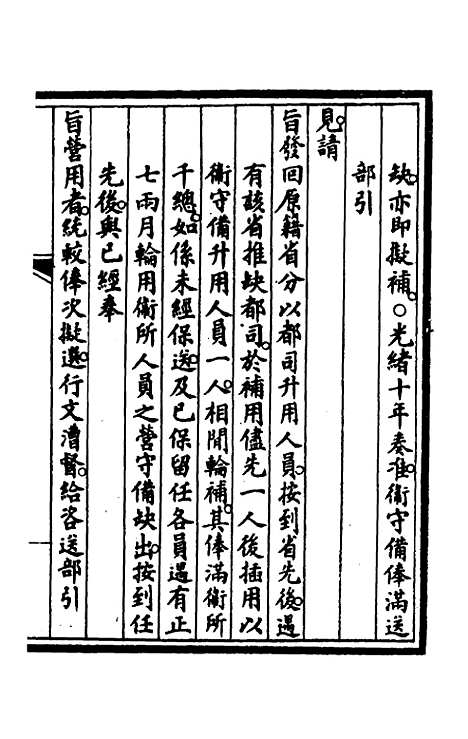 缺。亦即擬補。○光緒十年奏准。衛守備俸滿送
部引
見。請
旨發回原籍省分以都司升用人員。按到省先後。遇
有該省推缺都司。於補用儘先一人後插用以
衛守備升用人員一人。相閒輪補。其俸滿衛所
千總。如係未經保送。及已保留任各員。遇有正
七兩月輪用衛所人員之營守備缺出。按到任
先後。與已經奉
旨營用者。統較俸次擬選。行文漕督。給咨送部引